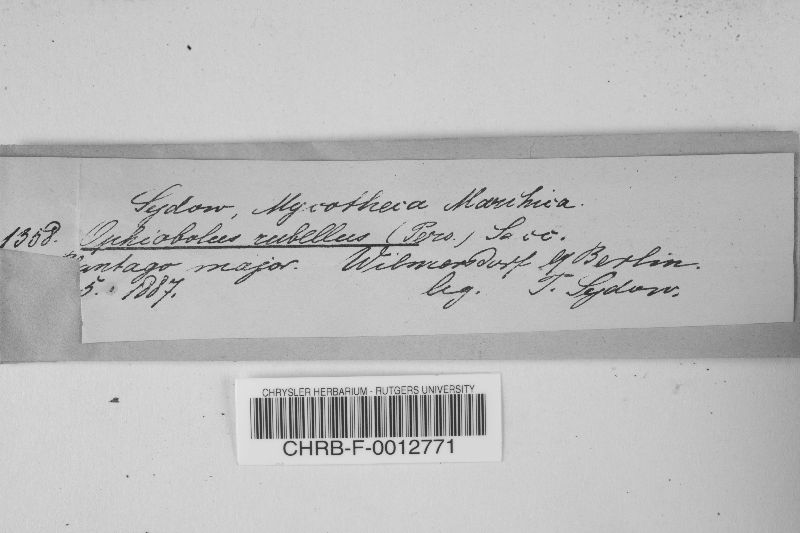 Sydow, Mycotheca Marchica.
1358. Ophiobolus rubellus (Pers.) Sacc.
Plantago major. Wilmersdorf b/Berlin.
5. 1887. leg. P. Sydow.
CHRYSLER HERBARIUM - RUTGERS UNIVERSITY
CHRB-F-0012771